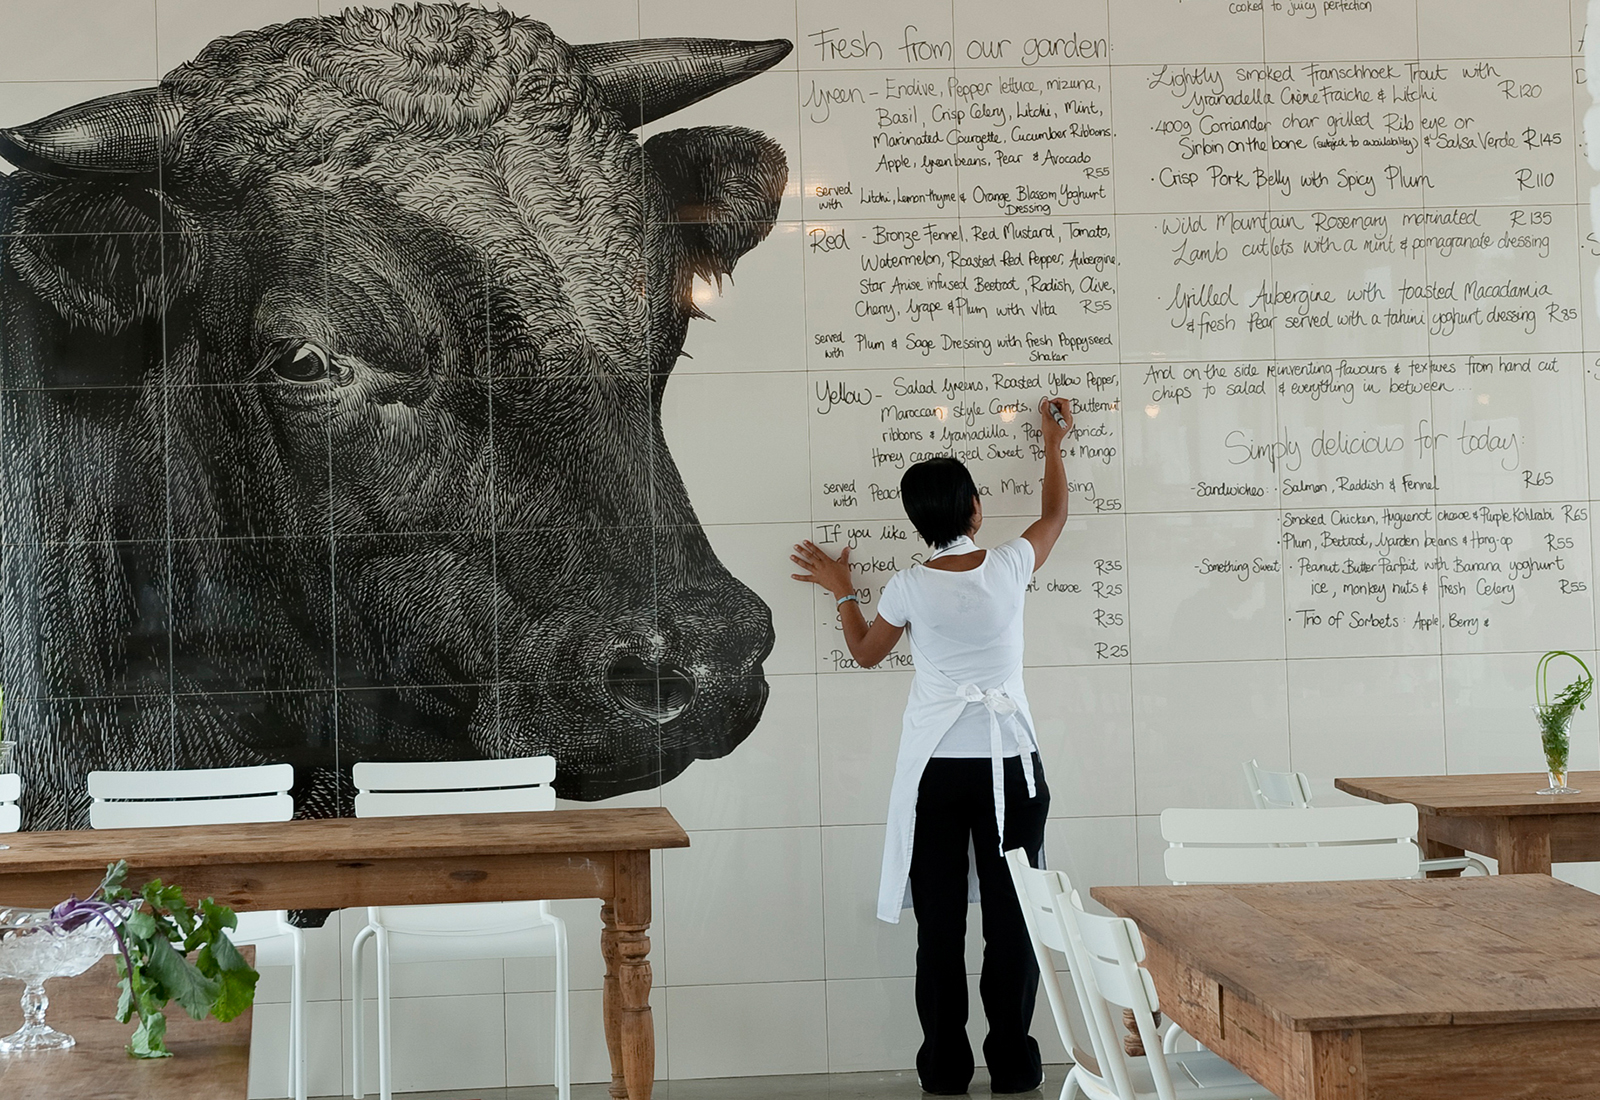 Fresh from our garden:
Green - Endive, Pepper lettuce, mizuna,
Basil, Crisp Celery, Litchi, Mint,
Marinated Courgette, Cucumber Ribbons.
Apple, green beans, Pear & Avocado
R55
served with Litchi, Lemon-thyme & Orange Blossom Yoghurt
Dressing
Red - Bronze Fennel, Red Mustard, Tomato,
Watermelon, Roasted Red Pepper, Aubergine,
Star Anise infused Beetroot, Radish, Olive,
Cherry, Grape & Plum with vlita R55
served with Plum & Sage Dressing with fresh Poppyseed
Shaker
Yellow - Salad Greens, Roasted Yellow Pepper,
Maroccan style Carrots, Butternut
ribbons & Granadilla, Apricot,
Honey caramelized Sweet & Mango
served with Mint
R55
If you like
R35
cheese R25
R35
R25
cooked to juicy perfection
· Lightly smoked Franschhoek Trout with
Granadella Crème Fraiche & Litchi R120
· 400g Corriander char grilled Rib eye or
Sirloin on the bone (subject to availability) & Salsa Verde R145
· Crisp Pork Belly with Spicy Plum R110
· Wild Mountain Rosemary marinated R135
Lamb cutlets with a mint & pomagranate dressing
· Grilled Aubergine with toasted Macadamia
& fresh Pear served with a tahini yoghurt dressing R85
And on the side reinventing flavours & textures from hand cut
chips to salad & everything in between....
Simply delicious for today:
- Sandwiches: · Salmon, Raddish & Fennel R65
· Smoked Chicken, Huguenot cheese & Purple Kohlrabi R65
· Plum, Beetroot, Garden beans & R55
- Something Sweet · Peanut Butter Parfait with Banana yoghurt
ice, monkey nuts & fresh Celery R55
· Trio of Sorbets: Apple, Berry &